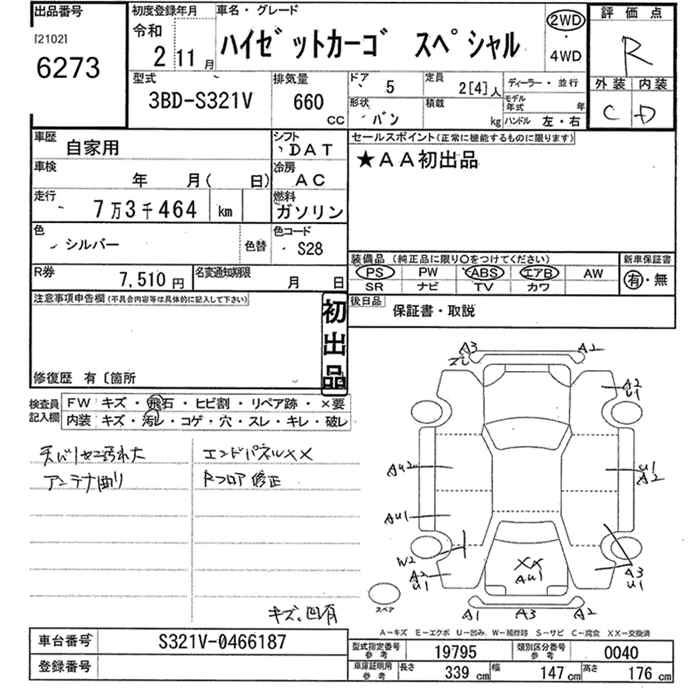 出品番号
[2102]
6273
初度登録年月
令和
2 11月
車名・グレード
ハイゼットカーゴ スペシャル
2WD
・
4WD
評価点
R
外装 内装
C D
型式
3BD-S321V
排気量
660
CC
ドア
5
定員
2[4]人
ディーラー・並行
形状
バン
積載
kg
モデル年式
年
ハンドル 左・右
車歴
自家用
シフト
DAT
車検
年 月( 日)
冷房
AC
走行
7万3千464 km
燃料
ガソリン
色
シルバー
色替
色コード
S28
R券
7,510円
名変通知期限
月 日
セールスポイント(正常に機能するものに限ります)
★AA初出品
装備品(純正品に限り○をつけてください)
PS PW ABS エアB AW
SR ナビ TV カワ
新車保証書
有・無
後日品
保証書・取説
注意事項申告欄(不具合内容等は具体的に記入して下さい)
初出品
修復歴 有〔箇所
検査員
記入欄
FW キズ・飛石・ヒビ割・リペア跡・×要
内装 キズ・汚レ・コゲ・穴・スレ・キレ・破レ
天バリセニ汚れ大
アンテナ曲り
エンドパネルXX
Rフロア修正
キズ、凹有
A3
A2
A2
U1
AU2
U1
A2
AU1
W2
A2
U1
XX
AU1
A3
U1
スペア
A1 A3 A2
A−キズ E−エクボ U−凹み W−補修跡 S−サビ C−腐食 XX−交換済
車台番号
S321V-0466187
登録番号
型式指定番号
参考
19795
類別区分番号
参考
0040
車庫証明用
参考
長さ
339 cm
幅
147 cm
高さ
176 cm